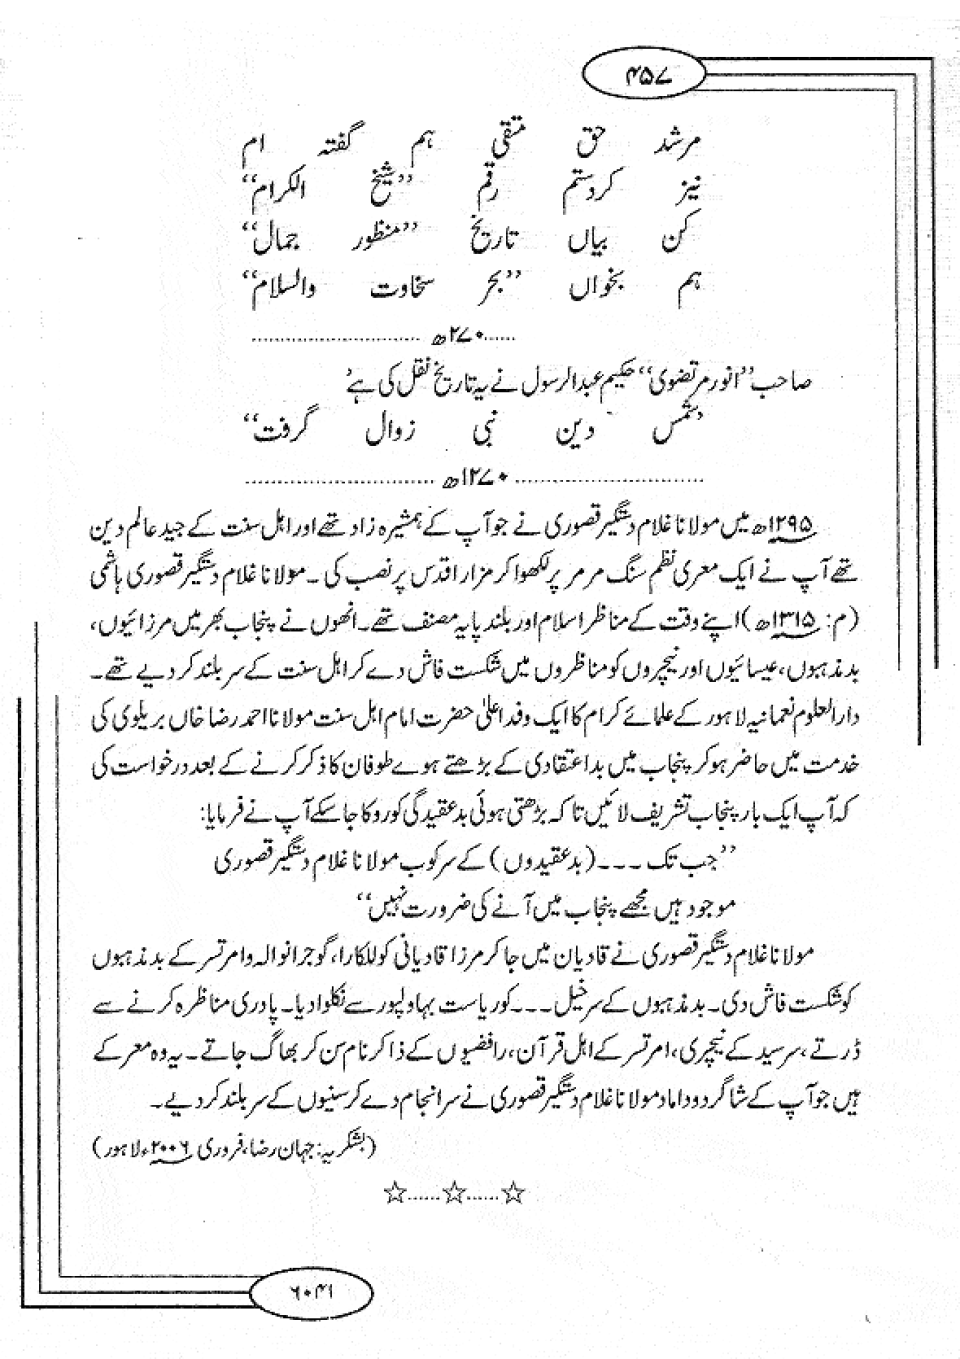 ۴۵۷
مرشد حق متقی ہم گفتہ ام
نیز کردستم رقم ”شیخ الکرام“
کن بیاں تاریخ ”منظور جمال“
ہم بخواں ”بحر سخاوت والسلام“
......۲۷۰ھ............................
صاحب ”انور مرتضوی“ حکیم عبدالرسول نے یہ تاریخ نقل کی ہے
”شمس دین نبی زوال گرفت“
................................۱۲۷۰ھ................................
۱۲۹۵ھ میں مولانا غلام دستگیر قصوری نے جو آپ کے ہمشیرہ زاد تھے اور اہل سنت کے جید عالم دین
تھے آپ نے ایک معری نظم سنگ مرمر پر لکھوا کر مزار اقدس پر نصب کی۔ مولانا غلام دستگیر قصوری ہاشمی
(م: ۱۳۱۵ھ) اپنے وقت کے مناظر اسلام اور بلند پایہ مصنف تھے۔ انھوں نے پنجاب بھر میں مرزائیوں،
بدمذہبوں، عیسائیوں اور نیچریوں کو مناظروں میں شکست فاش دے کر اہل سنت کے سر بلند کر دیے تھے۔
دارالعلوم نعمانیہ لاہور کے علمائے کرام کا ایک وفد اعلیٰ حضرت امام اہل سنت مولانا احمد رضا خاں بریلوی کی
خدمت میں حاضر ہو کر پنجاب میں بداعتقادی کے بڑھتے ہوے طوفان کا ذکر کرنے کے بعد درخواست کی
کہ آپ ایک بار پنجاب تشریف لائیں تا کہ بڑھتی ہوئی بدعقیدگی کو روکا جا سکے آپ نے فرمایا:
”جب تک ۔۔۔ (بدعقیدوں) کے سرکوب مولانا غلام دستگیر قصوری
موجود ہیں مجھے پنجاب میں آنے کی ضرورت نہیں“
مولانا غلام دستگیر قصوری نے قادیان میں جا کر مرزا قادیانی کو للکارا، گوجرانوالہ و امرتسر کے بدمذہبوں
کو شکست فاش دی۔ بدمذہبوں کے سرخیل ۔۔۔ کو ریاست بہاولپور سے نکلوا دیا۔ پادری مناظرہ کرنے سے
ڈرتے، سرسید کے نیچری، امرتسر کے اہل قرآن، رافضیوں کے ذاکر نام سن کر بھاگ جاتے۔ یہ وہ معرکے
ہیں جو آپ کے شاگرد و داماد مولانا غلام دستگیر قصوری نے سرانجام دے کر سنیوں کے سر بلند کر دیے۔
(بشکریہ: جہان رضا، فروری ۲۰۰۶ء لاہور)
☆......☆......☆
۶۰۴۱